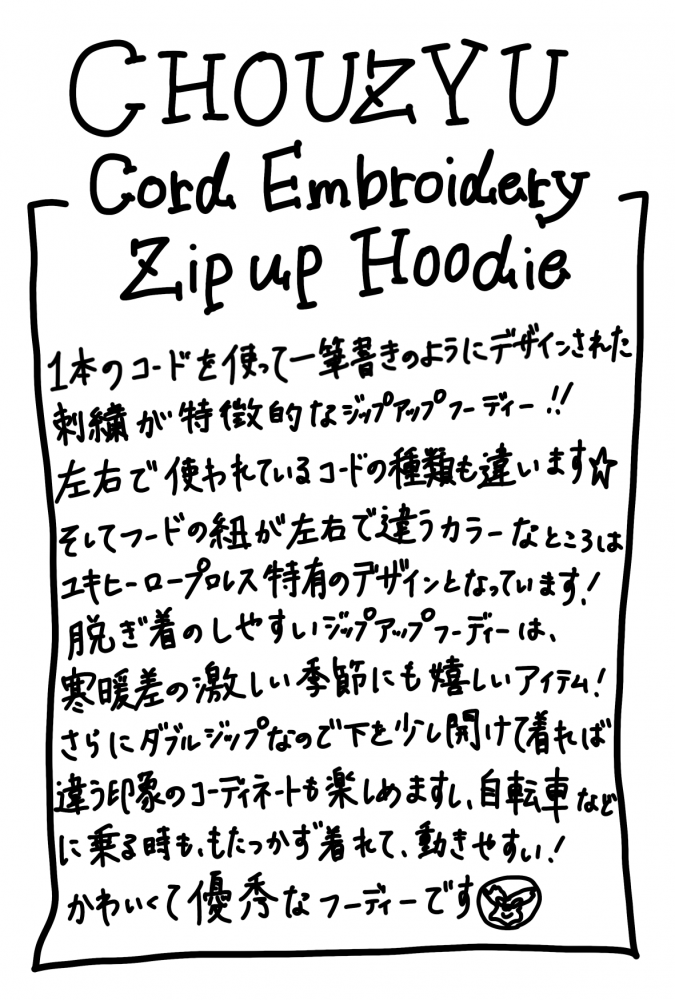 CHOUZYU
Cord Embroidery
Zip up Hoodie
1本のコードを使って一筆書きのようにデザインされた
刺繍が特徴的なジップアップフーディー!!
左右で使われているコードの種類も違います☆
そしてフードの紐が左右で違うカラーなところは
ユキヒーロープロレス特有のデザインとなっています!
脱ぎ着のしやすいジップアップフーディーは、
寒暖差の激しい季節にも嬉しいアイテム!
さらにダブルジップなので下を少し開けて着れば
違う印象のコーディネートも楽しめますし、自転車など
に乗る時も、もたつかず着れて、動きやすい!
かわいくて優秀なフーディーです